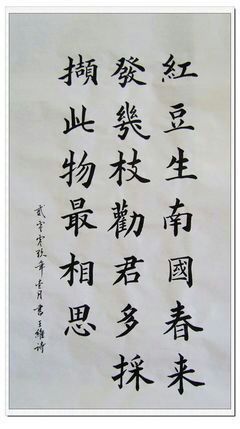 紅豆生南國春来
發幾枝勸君多採
擷此物最相思
貳零零玖年壹月書王維詩